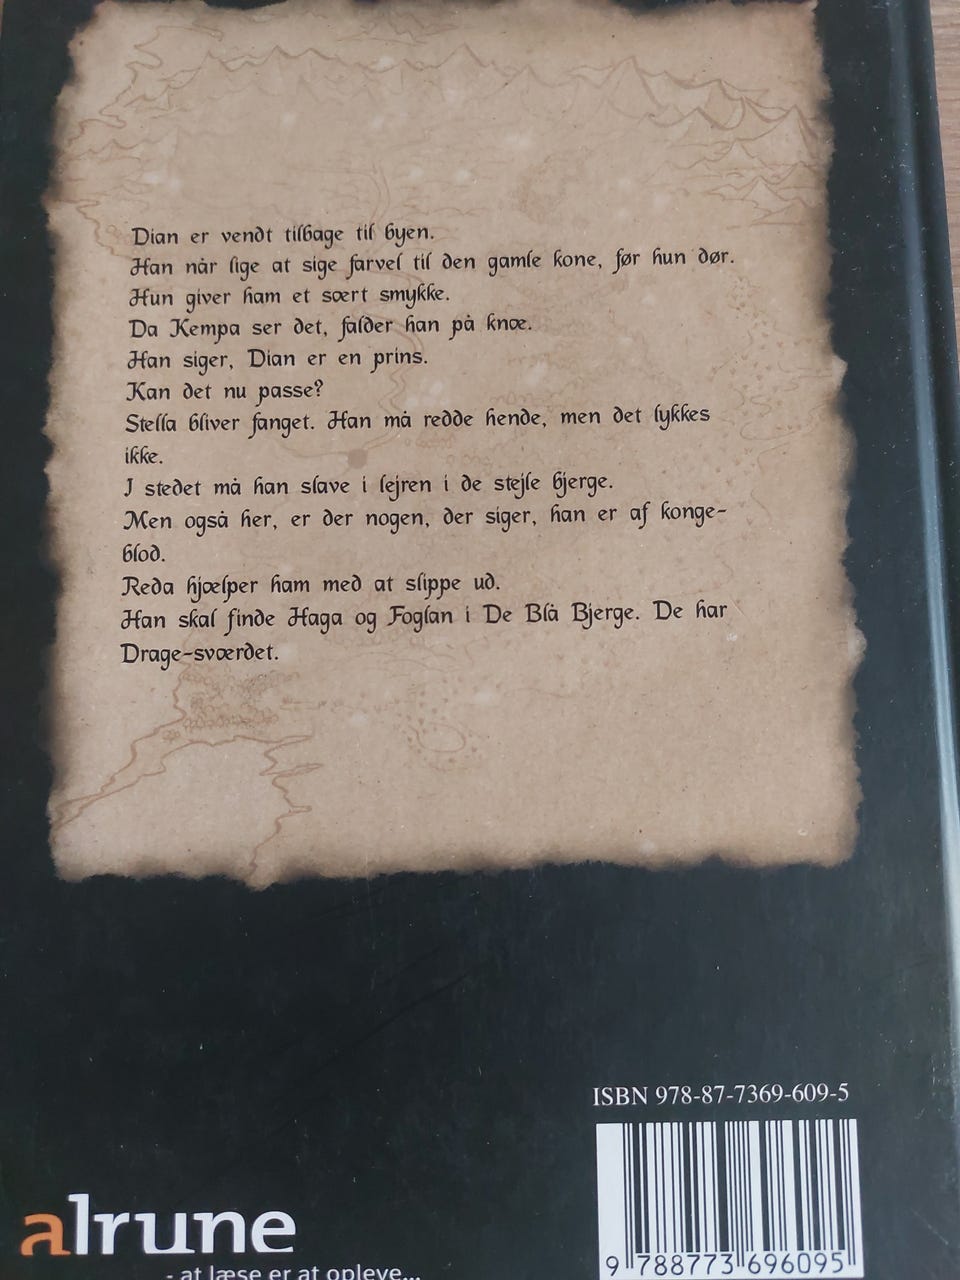 Dian er vendt tilbage til byen.
Han når lige at sige farvel til den gamle kone, før hun dør.
Hun giver ham et sært smykke.
Da Kempa ser det, falder han på knæ.
Han siger, Dian er en prins.
Kan det nu passe?
Stella bliver fanget. Han må redde hende, men det lykkes
ikke.
I stedet må han slave i lejren i de stejle bjerge.
Men også her, er der nogen, der siger, han er af konge-
blod.
Reda hjælper ham med at slippe ud.
Han skal finde Haga og Foglan i De Blå Bjerge. De har
Drage-sværdet.
ISBN 978-87-7369-609-5
9 788773 696095
alrune
- at læse er at opleve...